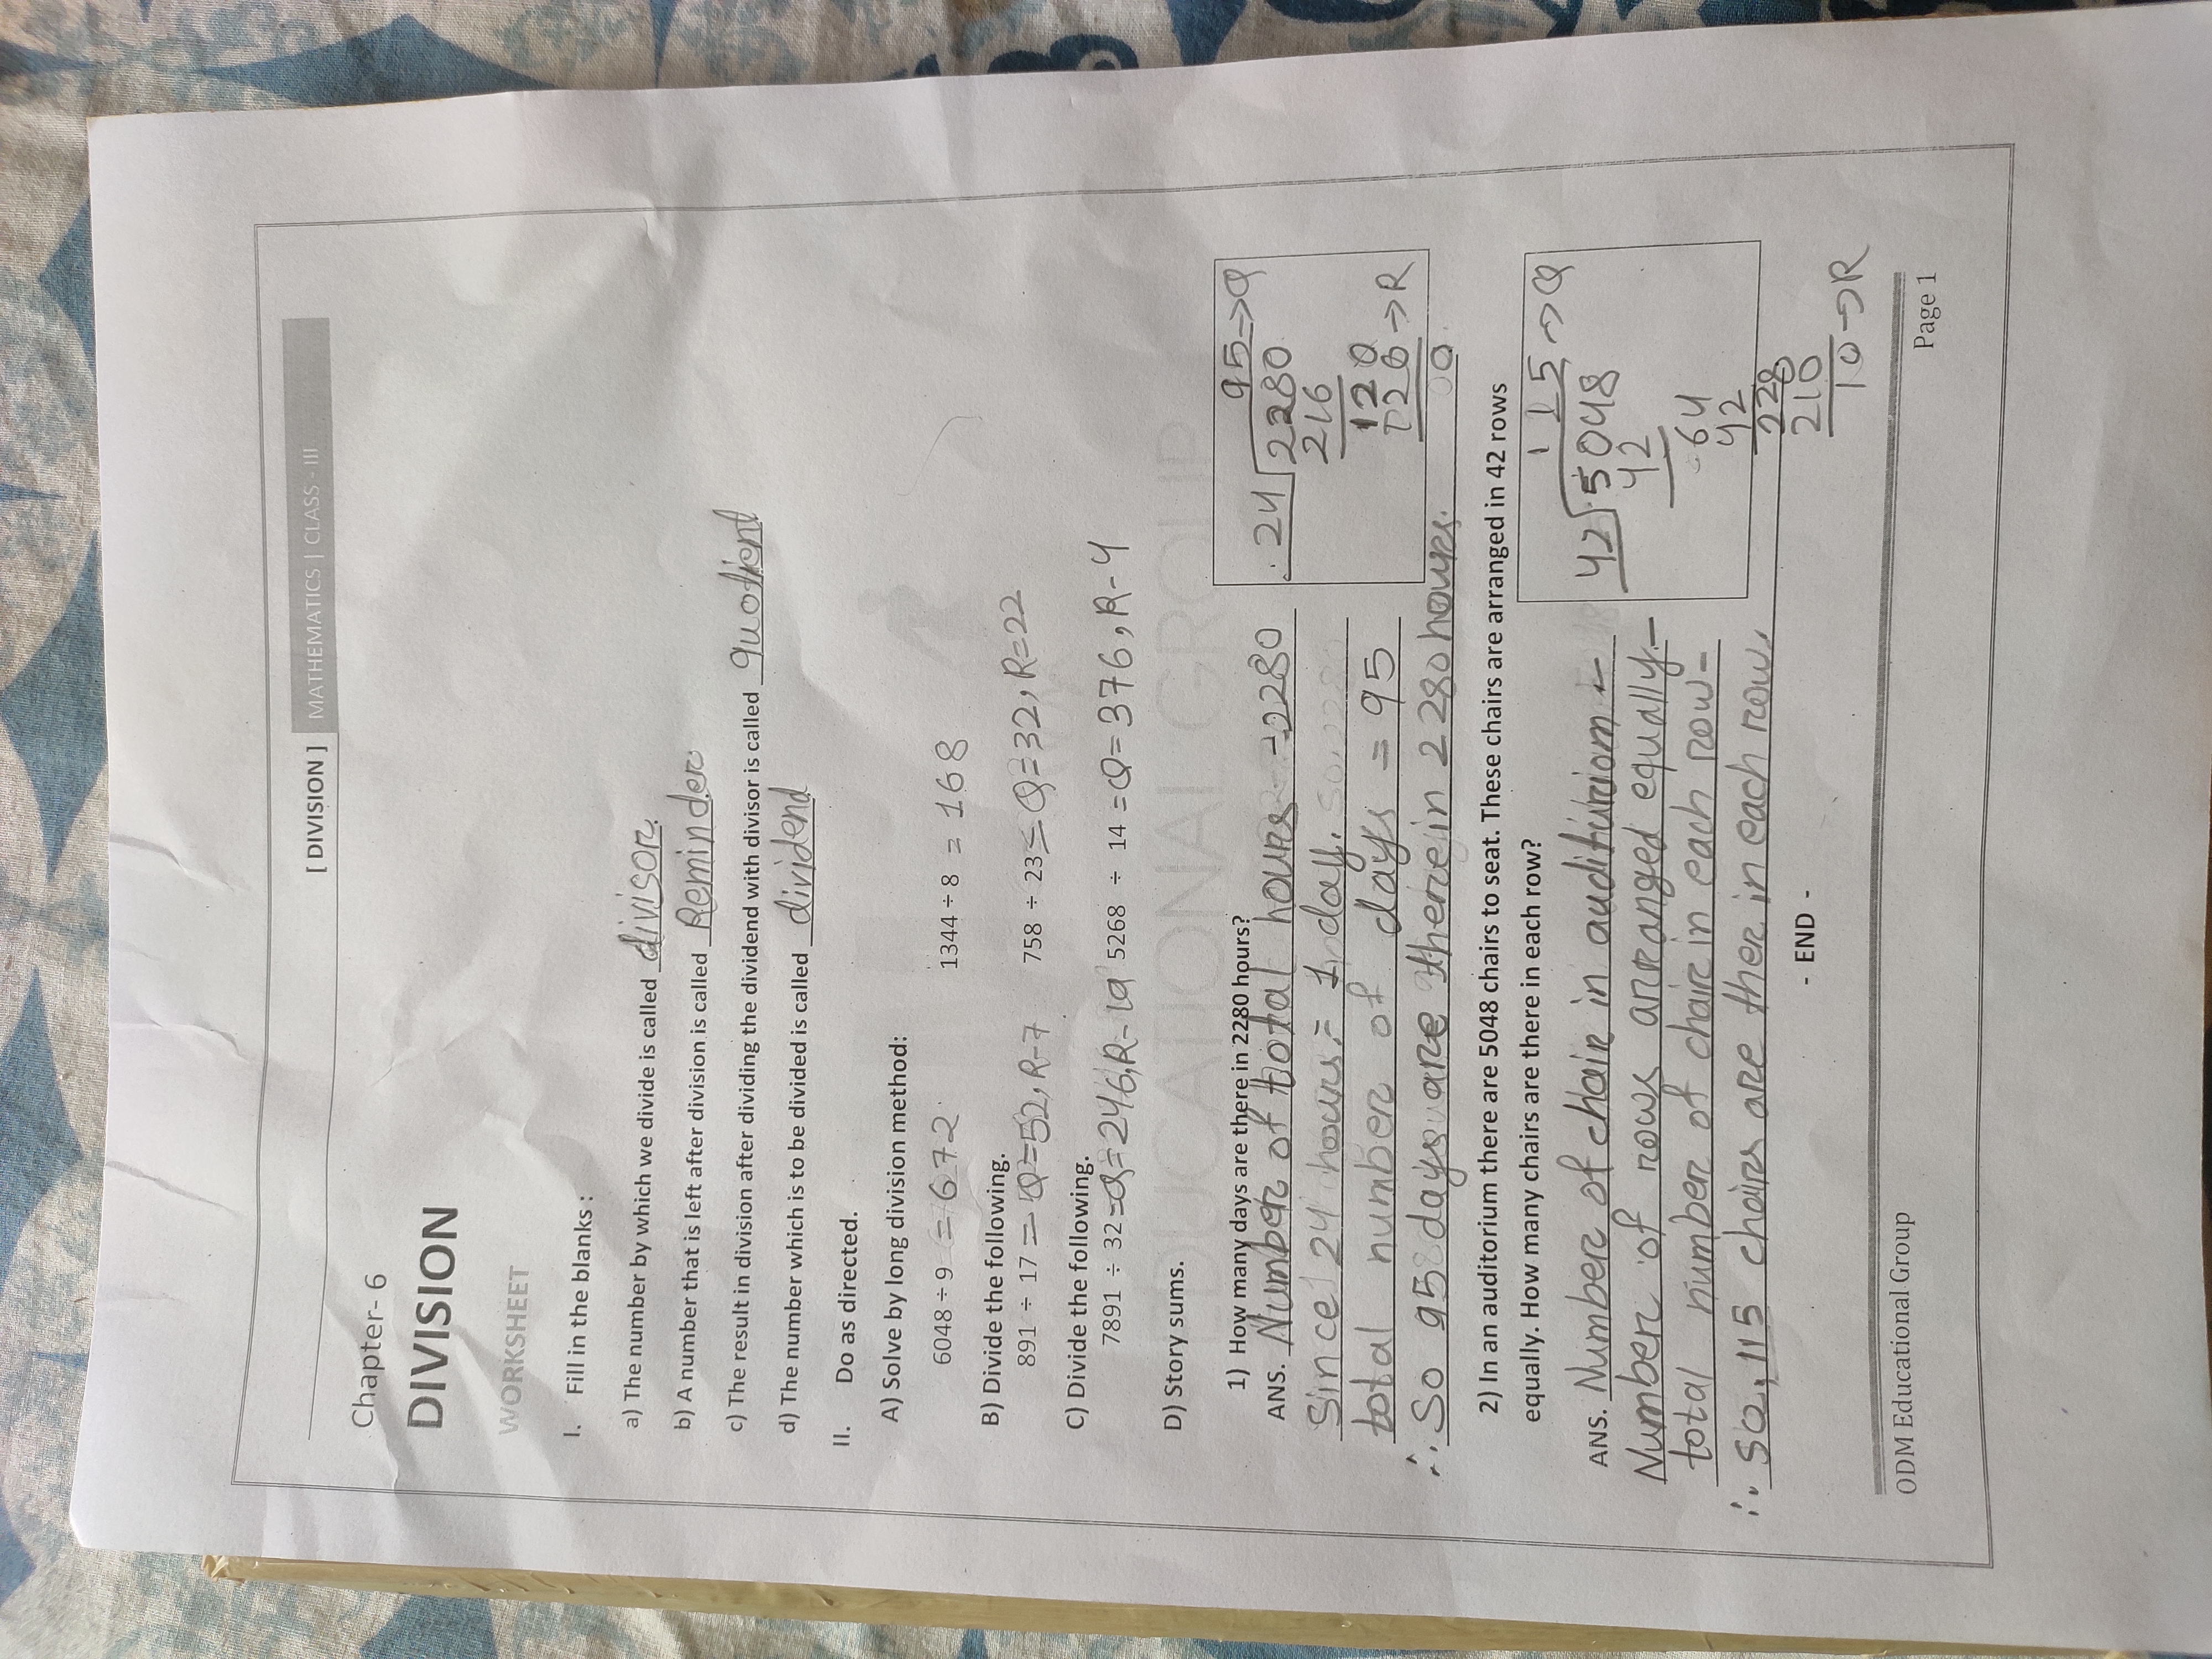 [ DIVISION ] MATHEMATICS | CLASS - III
Chapter- 6
DIVISION
WORKSHEET
I. Fill in the blanks :
a) The number by which we divide is called divisor.
b) A number that is left after division is called Reminder
c) The result in division after dividing the dividend with divisor is called quotient
d) The number which is to be divided is called dividend
II. Do as directed.
A) Solve by long division method:
6048 ÷ 9 = 672 1344 ÷ 8 = 168
B) Divide the following.
891 ÷ 17 = Q=52, R-7 758 ÷ 23 = Q=32, R=22
C) Divide the following.
7891 ÷ 32 = Q=246, R-19 5268 ÷ 14 = Q=376, R-4
EDUCATIONAL GROUP
D) Story sums.
1) How many days are there in 2280 hours?
ANS. Number of total hours - 2280
Since 24 hours = 1 nday.
total number of days = 95
∴ So 95 days are there in 2280 hours.
95→Q
24 2280
216
120
120→R
0
2) In an auditorium there are 5048 chairs to seat. These chairs are arranged in 42 rows
equally. How many chairs are there in each row?
ANS. Number of chair in audituriom -
Number of rows arranged equally -
total number of chair in each row -
∴ So, 115 chairs are ther in each row.
115→Q
42 5048
42
64
42
228
210
10→R
- END -
ODM Educational Group Page 1